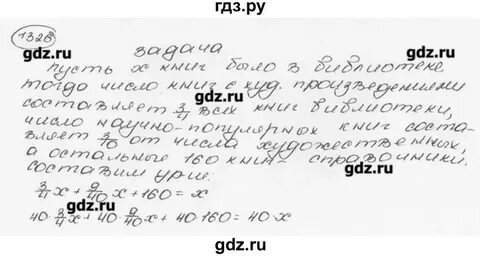 гдз.ру
1326
gdz.ru
gdz.ru
задача
пусть x книг было в библиотеке,
gdz.ru
gdz.ru
тогда число книг с худ. произведениями
составляет 3/4 всех книг библиотеки,
число научно-популярных книг соста-
вляет 3/10 от числа художественных,
gdz.ru
gdz.ru
а остальные 160 книг – справочники.
составим ур-ие:
3/4 x + 9/40 x + 160 = x
gdz.ru
gdz.ru
40 · 3/4 x + 40 · 9/40 x + 40 · 160 = 40 · x
gdz.ru
gdz.ru